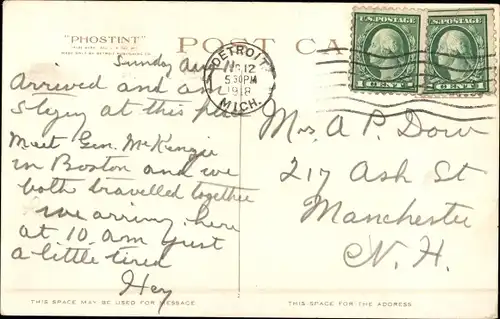 "PHOSTINT"
POST CA
DETROIT
12
530PM
1918
MICH.
U.S. POSTAGE
1 CENT 1
U.S. POSTAGE
1 CENT 1
Sunday Aug 11
Arrived and am
staying at this
Meet Gen. McKenzie
in Boston and we
both travelled together
we arriving here
at 10 am just
a little tired
Hey
Mrs A P. Dow
217 Ash St
Manchester
N. H.
THIS SPACE MAY BE USED FOR MESSAGE
THIS SPACE IS FOR THE ADDRESS